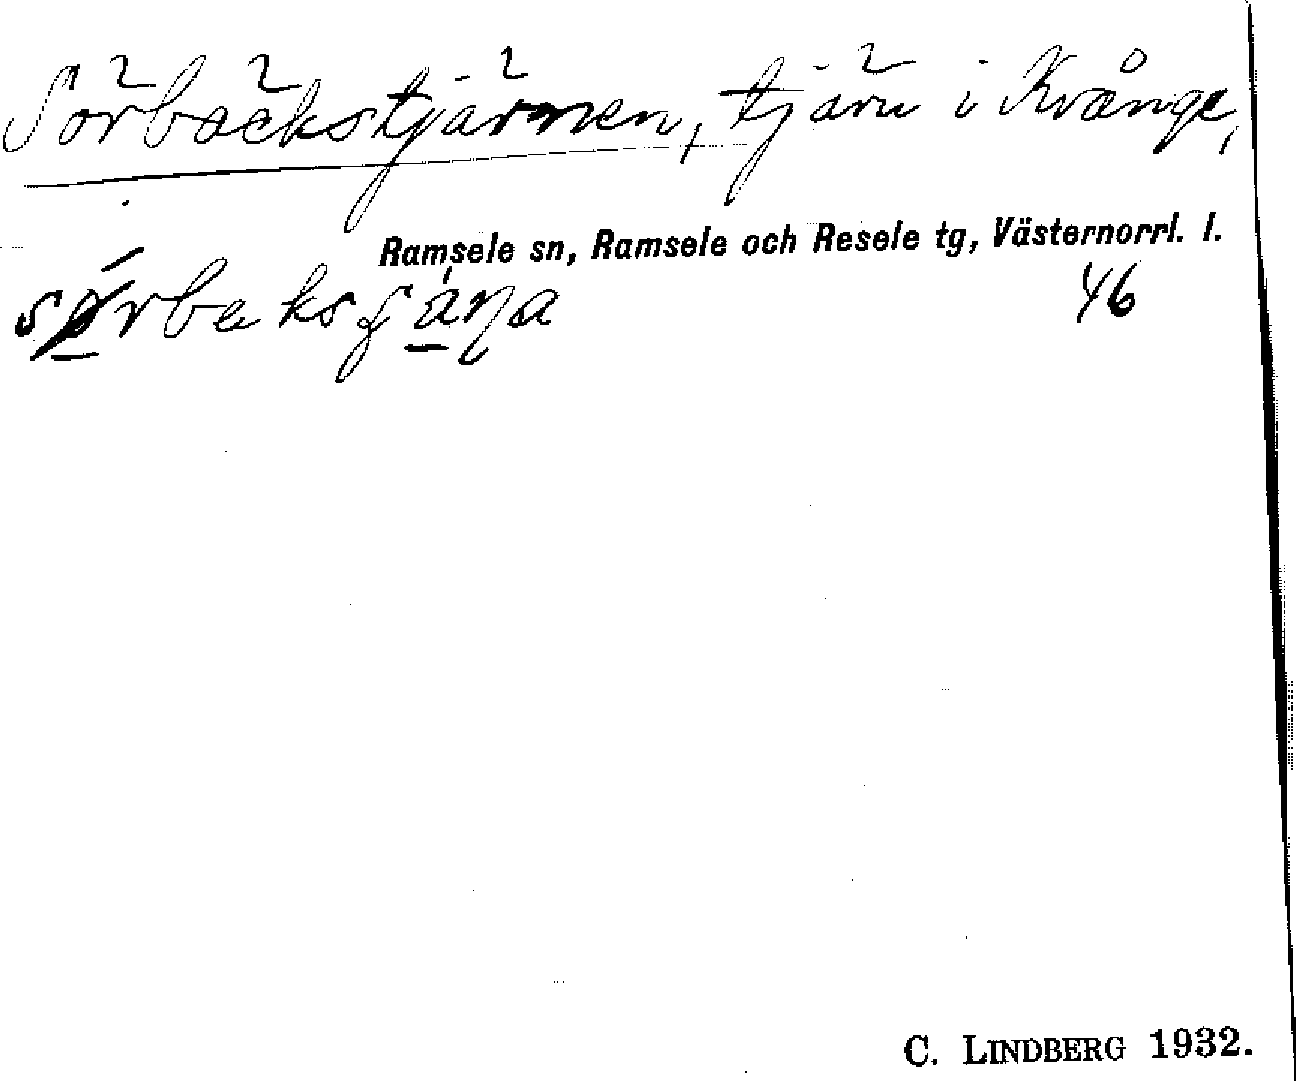 Sörbäckstjärnen, tjärn i Krånge,
Ramsele sn, Ramsele och Resele tg, Västernorrl. l.
46
C. LINDBERG 1932.